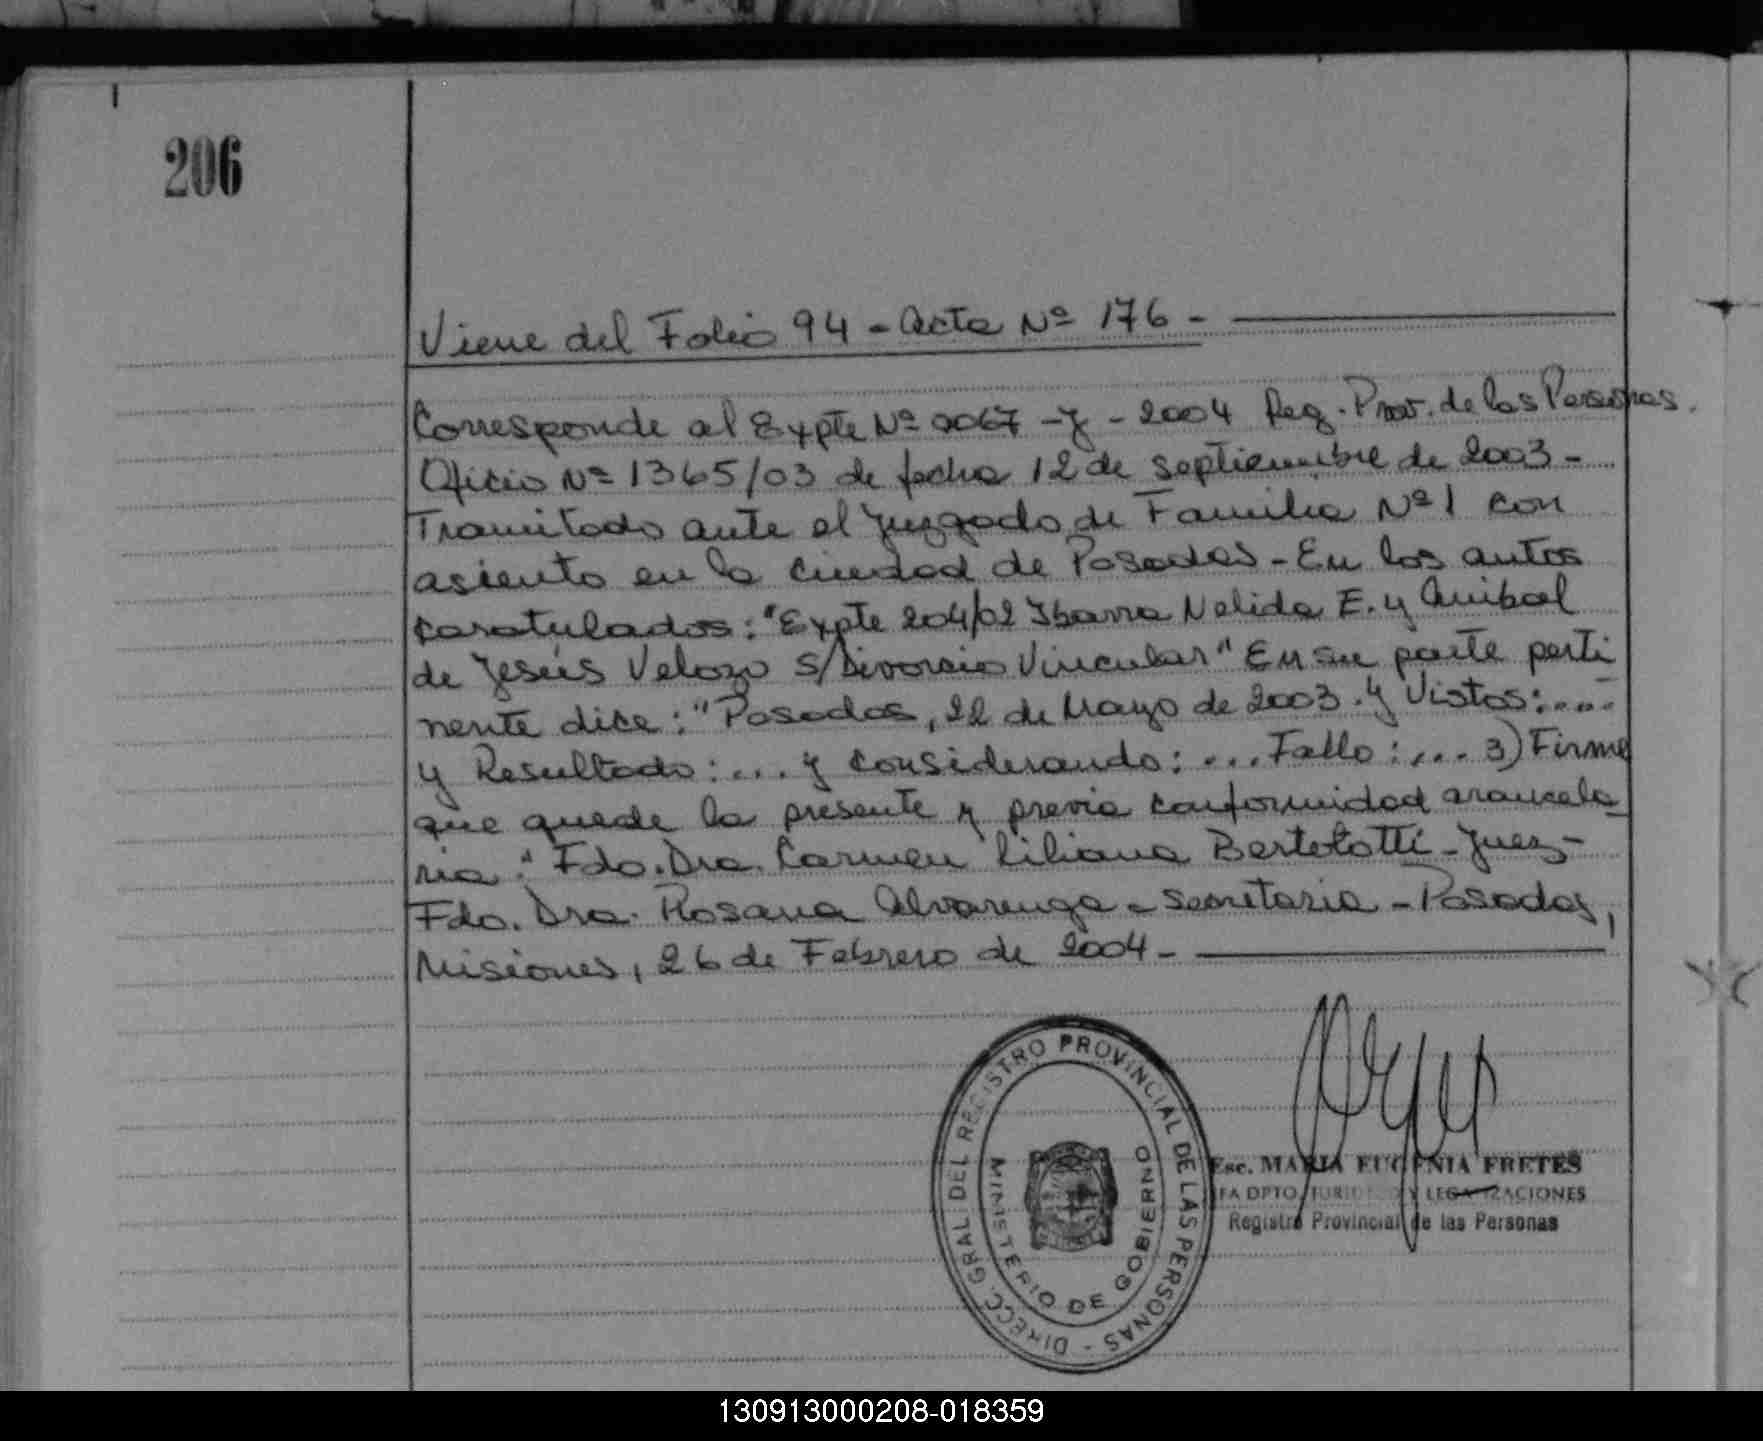 206
Viene del Folio 94 - Acta Nº 176 -
Corresponde al Expte Nº 0067 - J - 2004 Reg. Prov. de las Personas.
Oficio Nº 1365/03 de fecha 12 de septiembre de 2003 -
Tramitado ante el Juzgado de Familia Nº 1 con
asiento en la ciudad de Posadas - En los autos
caratulados: "Expte 204/02 Ibarra Nelida E. y Anibal
de Jesús Velozo S/Divorcio Vincular" En su parte perti
nente dice: "Posadas, 22 de Mayo de 2003. Y Vistos:....
y Resultado:... y considerando: ...Fallo:.... 3) Firme
que quede la presente y previa conformidad arancela
ria." Fdo. Dra. Carmen Liliana Bertolotti - Juez -
Fdo. Dra. Rosana Alvarenga - secretaria - Posadas,
Misiones, 26 de Febrero de 2004 -
DIRECC. GRAL. DEL REGISTRO PROVINCIAL DE LAS PERSONAS -
MINISTERIO DE GOBIERNO
Esc. MARIA EUGENIA FRETES
FA DPTO. JURIDICO Y LEGALIZACIONES
Registro Provincial de las Personas
130913000208-018359